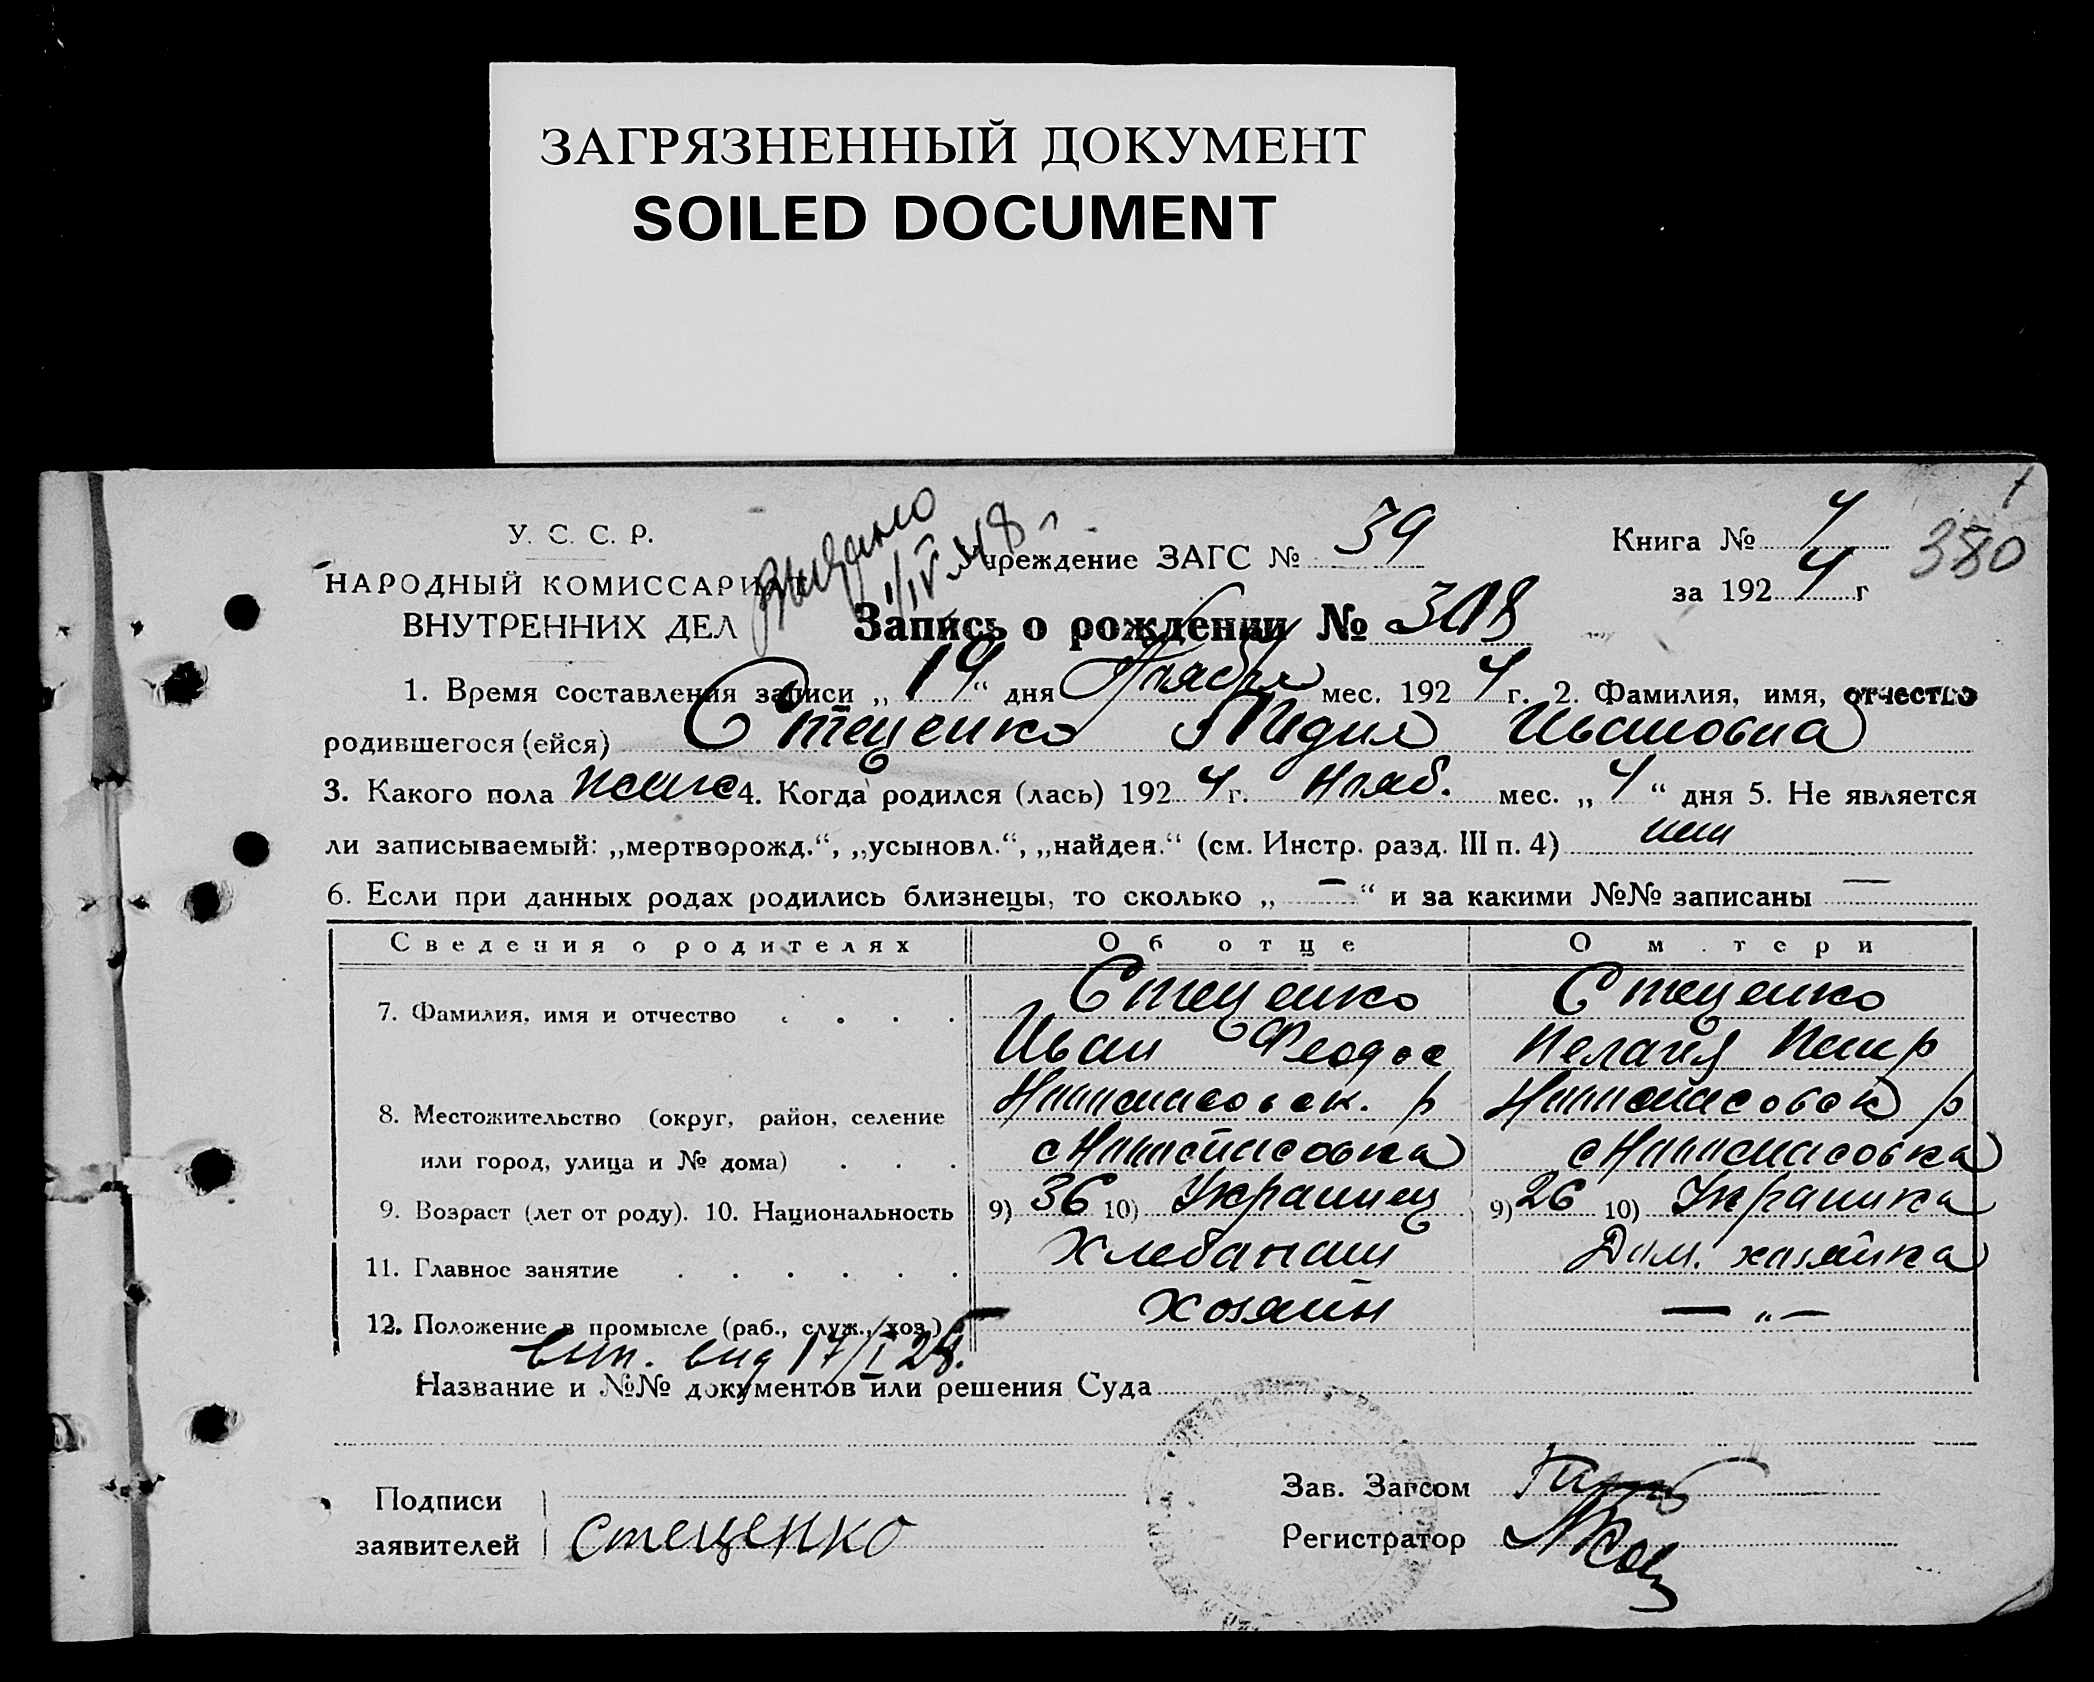 ЗАГРЯЗНЕННЫЙ ДОКУМЕНТ
SOILED DOCUMENT
У. С. С. Р.
НАРОДНЫЙ КОМИССАРИ
ВНУТРЕННИХ ДЕЛ
чреждение ЗАГС № 39
Книга № 4
за 192 4 г
380
Запись о рождении № 308
1. Время составления записи „ 19 “ дня Ноября мес. 192 4 г. 2. Фамилия, имя, отчество
родившегося (ейся) Стеценко Лидия Ивановна
3. Какого пола женс 4. Когда родился (лась) 192 4 г. Нояб. мес. „ 4 “ дня 5. Не является
ли записываемый: „мертворожд.“, „усыновл.“, „найден.“ (см. Инстр. разд. III п. 4)
6. Если при данных родах родились близнецы, то сколько „ — “ и за какими №№ записаны —
Сведения о родителях Об отце О м тери
7. Фамилия, имя и отчество . . . . Стеценко Стеценко
Иван Феодос Пелагея Петр
8. Местожительство (округ, район, селение р р
или город, улица и № дома) . . . с с
9. Возраст (лет от роду). 10. Национальность 9) 36 10) Украинец 9) 26 10) Украинка
11. Главное занятие . . . . . . Хлебопаш Дом. хозяйка
12. Положение в промысле (раб., служ., хоз.) Хозяин — „ —
вып. вид 17/I 28.
Название и №№ документов или решения Суда
Подписи
заявителей Стеценко
Зав. Загсом
Регистратор